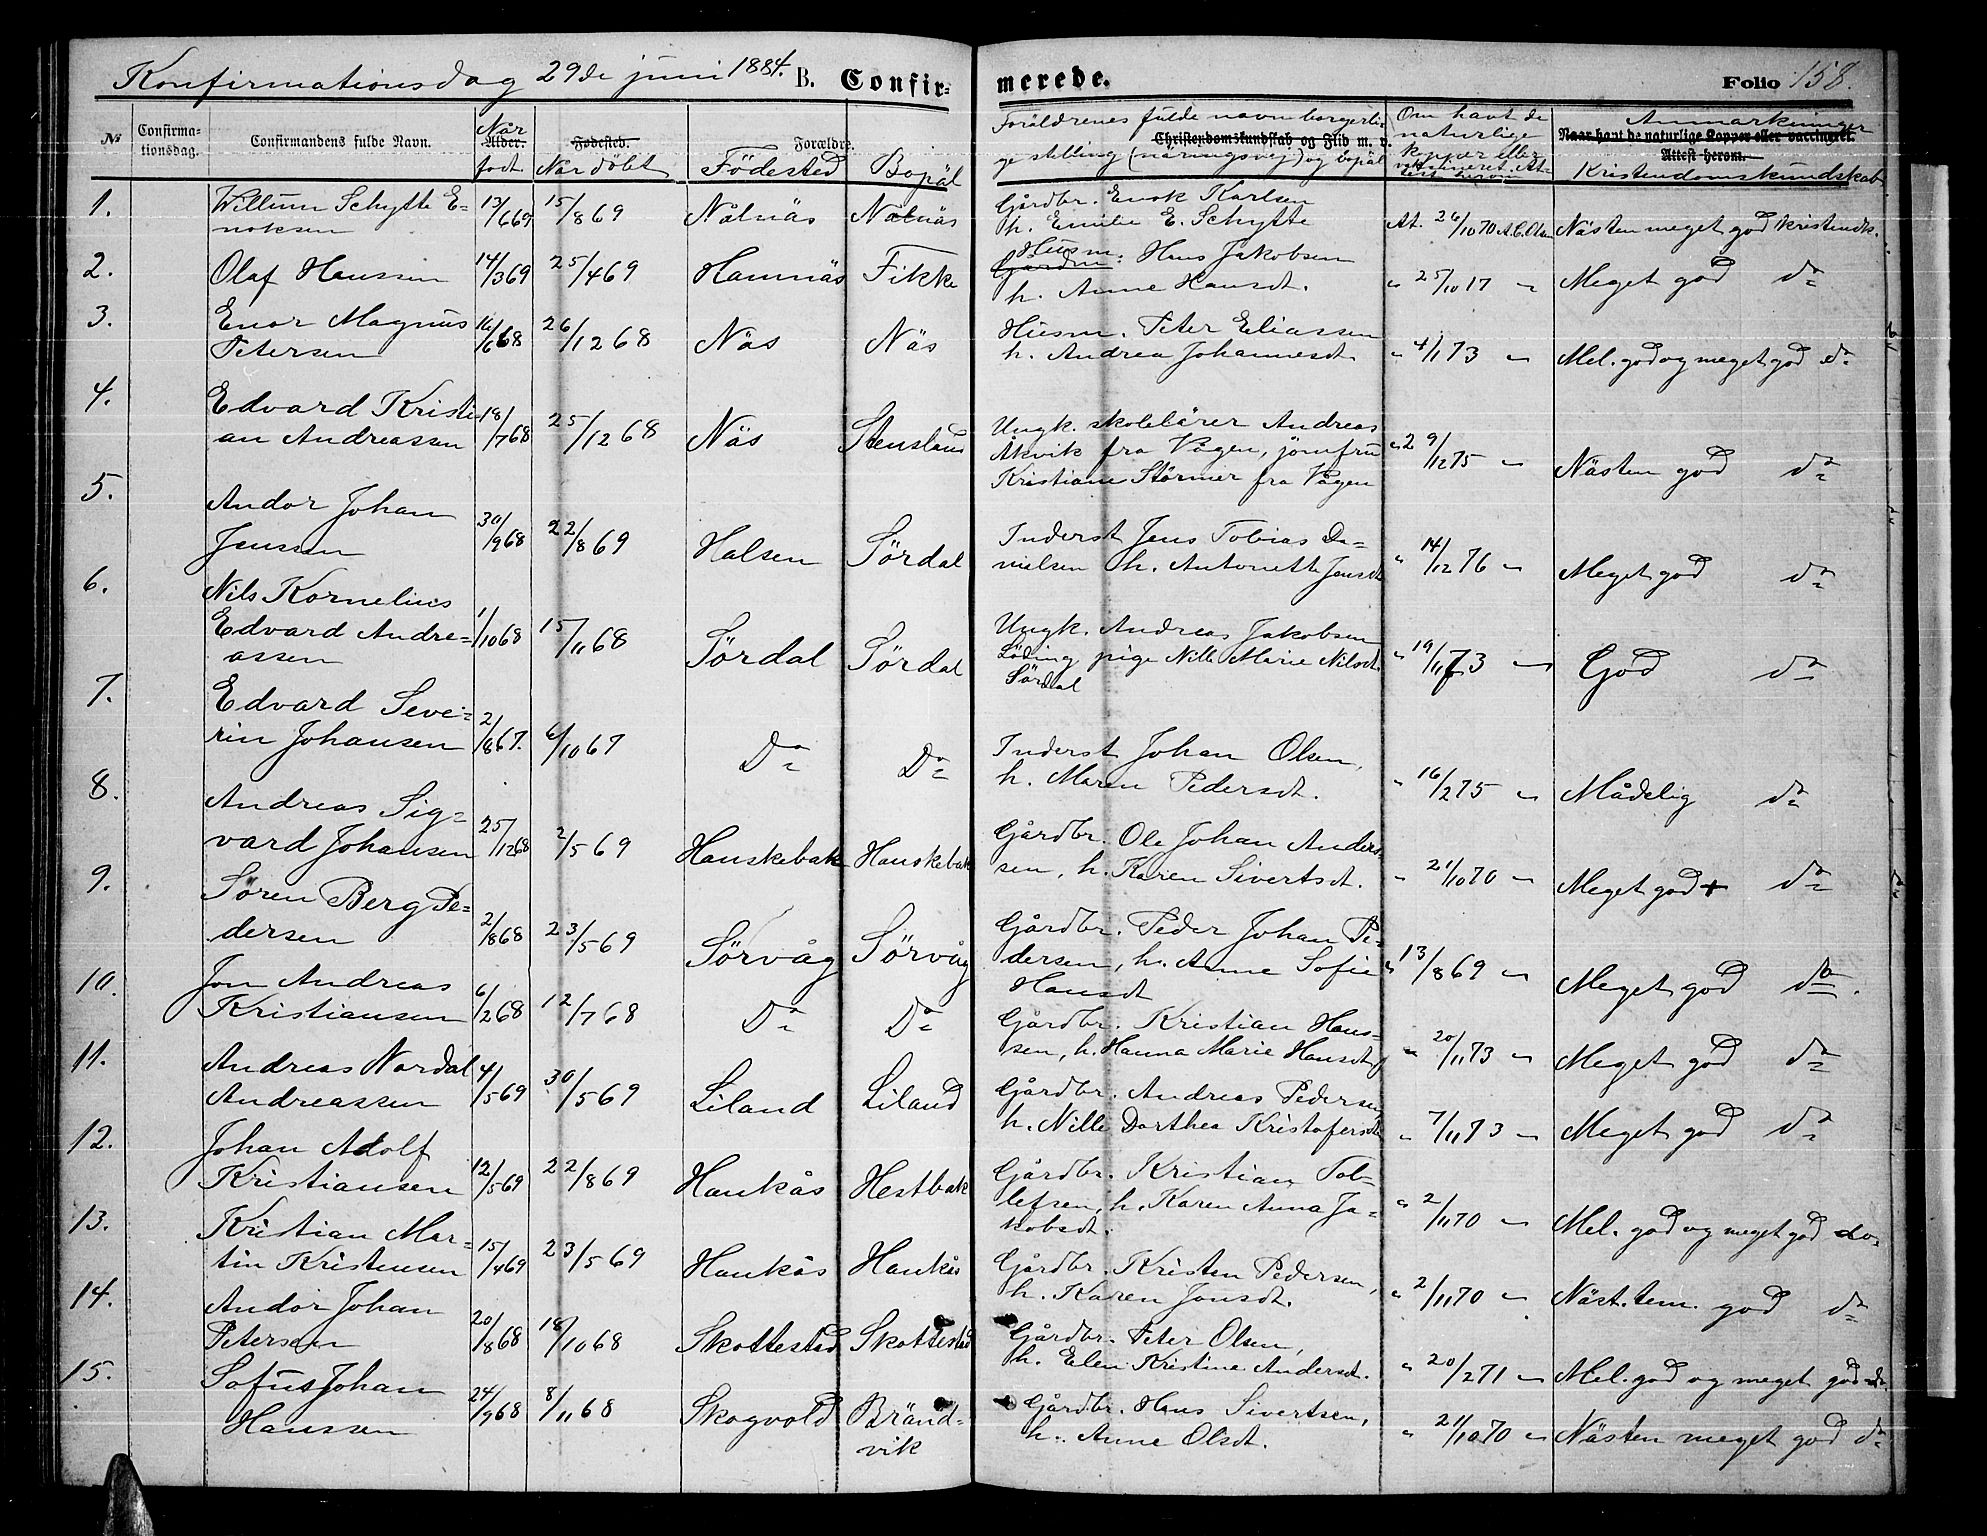 Konfirmationsdag 29de juni 1884. B. Confir-
merede.
Folio 158.
No
Confirma-
tionsdag.
Confirmandens fulde Navn.
Når
Alder.
født
Fødested.
Når döbt
Forældre.
Födested
Bopäl
Foräldrenes fulde navn borgerli-
Christendomskundskab og Flid m. v.
ge stilling (näringsvej) og bopäl
Om havt de
naturlige
kopper eller
vaksineret. At-
test herom
Anmärkninger
Naar havt de naturlige Kopper eller vaccineret.
Attest herom.
Kristendomskundskab
1. Willum Schytte E- 13/6 69 15/8 69 Nålnäs Nålnäs Gårdbr. Enok Karlsen At. 26/10 70 A.C.Olsen Nästen meget god kristendk.
noksen h. Emilie E. Schytte
2. Olaf Hanssen 14/3 69 25/4 69 Hamnäs Fikke Husm. Hans Jakobsen " 25/10 17 " Meget god do
Gårdm.
h. Anne Hansdt.
3. Enor Magnus 16/6 68 26/12 68 Näs Näs Husm. Peter Eliassen " 4/1 73 " Mel. god og meget god do
Petersen h. Andrea Johannesdt.
4. Edvard Kristi- 18/7 68 25/12 68 Näs Stensland Ungk. skolelärer Andreas " 29/12 75 " Nästen god do
an Andreassen Åkvik fra Vågen, jomfru
Kristiane Størmer fra Vågen
5. Andor Johan 30/9 68 22/8 69 Halsen Sördal Inderst Jens Tobias Da- " 14/12 76 " Meget god do
Jenssen nielsen h. Antonette Jensdt
6. Nils Kornelius
Edvard Andre- 1/10 68 15/11 68 Sördal Sördal Ungk. Andreas Jakobsen " 19/11 73 " God do
assen Löding pige Nille Marie Nilsdt.
Sördal
7. Edvard Seve- 2/8 67. 6/10 67 Do Do Inderst Johan Olsen, " 16/2 75 " Mådelig do
rin Johansen h. Maren Pedersdt.
8. Andreas Sig- 25/12 68 2/5 69 Hanskebak Hanskebak Gårdbr. Ole Johan Anders- " 21/10 70 " Meget god + do
vard Johansen sen, h. Karen Sivertsdt.
9. Søren Berg Pe- 2/8 68 23/5 69 Sörvåg Sörvåg Gårdbr. Peder Johan Pe- " 13/8 69 " Meget god do.
dersen dersen, h. Anne Sofie
Hansdt
10. Jon Andreas 6/2 68 12/7 68 Do Do Gårdbr. Kristian Hans- " 20/11 73 " Meget god do
Kristiansen sen, h. Hanna Marie Hansdt
11. Andreas Nordal 4/5 69 30/5 69 Liland Liland Gårdbr. Andreas Pedersen " 7/11 73 " Meget god do
Andreassen h. Nille Dorthea Kristofersdt
12. Johan Adolf 12/5 69 22/8 69 Haukås Hestbak Gårdbr. Kristian Tob- " 2/11 70 " Mel. god og meget god do.
Kristiansen lefsen, h. Karen Anna Ja-
kobsdt.
13. Kristian Mar- 15/4 69 23/5 69 Haukås Haukås Gårdbr. Kristen Pedersen, " 2/11 70 " Näst.tem. god do
tin Kristensen h. Karen Jonsdt.
14. Andor Johan 20/8 68 18/10 68 Skottestad Skottestad Gårdbr. Peter Olsen, " 20/2 71 " Mel. god og meget god do.
Petersen h. Elen Kristine Andersdt.
15. Sofus Johan 24/9 68 8/11 68 Skogvold Bränd- Gårdbr. Hans Sivertsen, " 21/10 70 " Nästen meget god do
Hanssen vik h. Anne Olsdt.